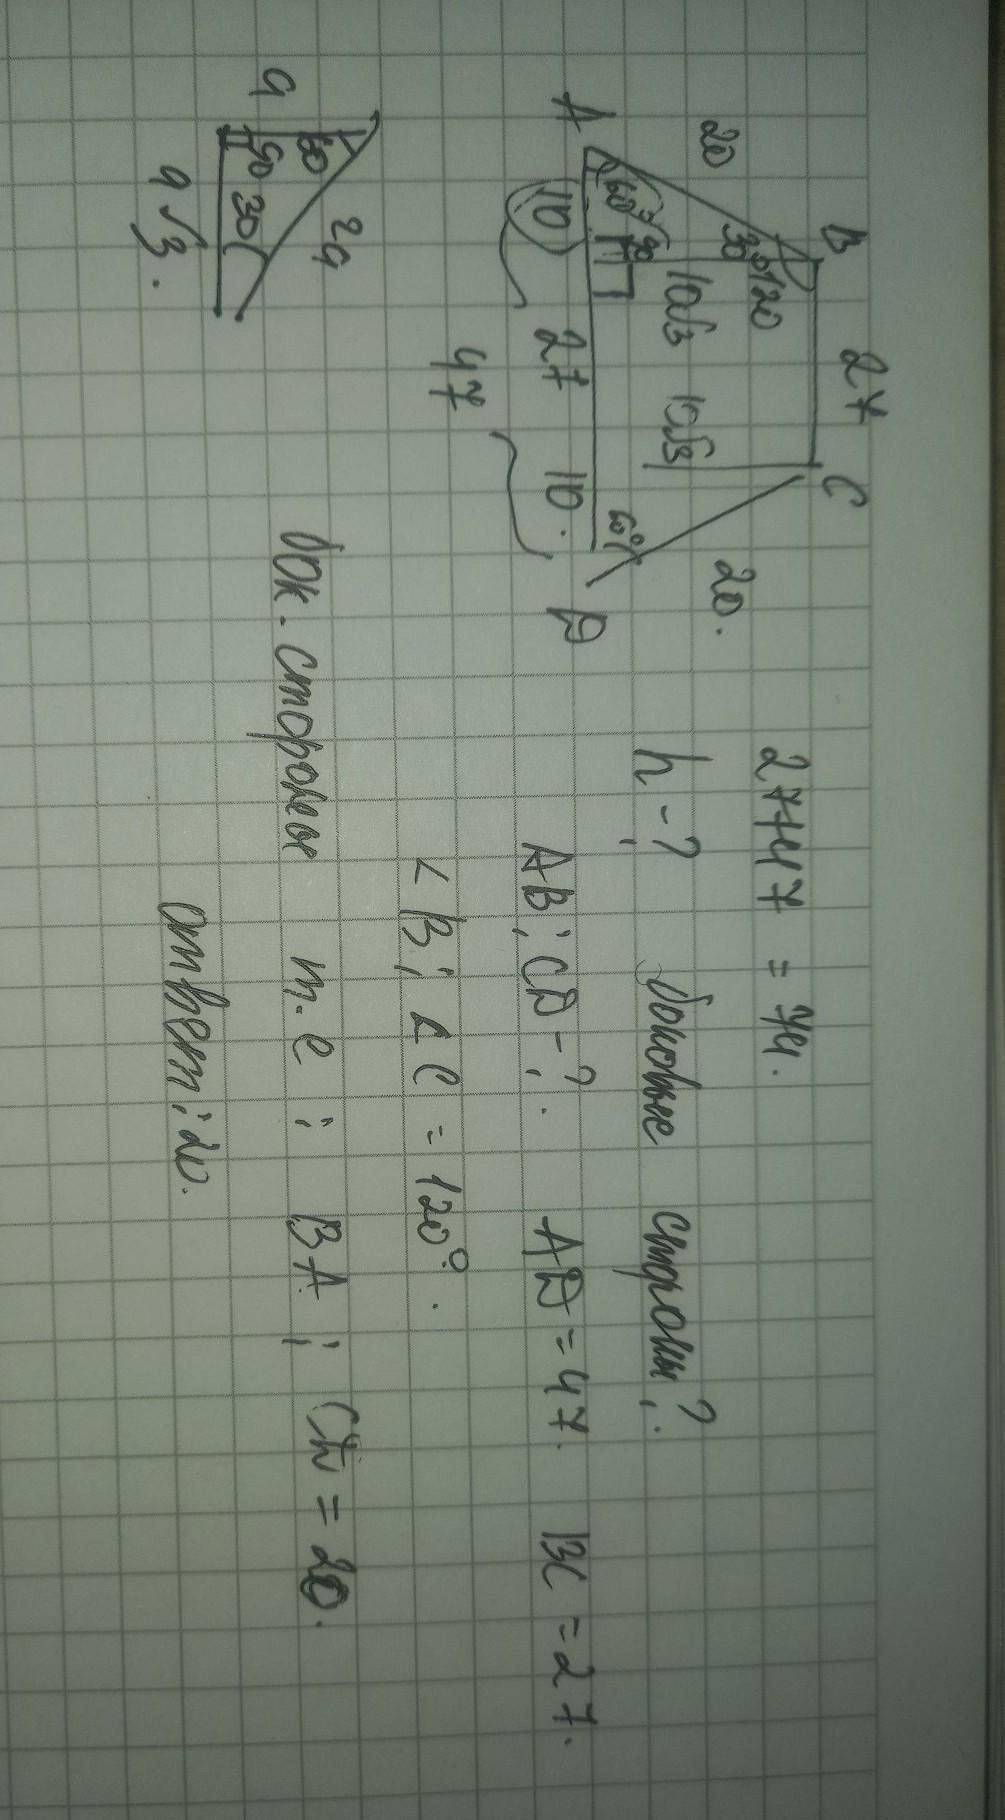 B 27 C
20 30° 120 20.
10√3 10√3
60° 90 60°
A 10 27 10. D
47
27+47 = 74.
h-? боковые стороны?
AB; CD-?. AD=47. BC=27.
∠B; ∠C = 120°.
бок. стороны т.е ; BA ; CD = 20.
Ответ: 20.
60 2a
a 90 30
a√3.